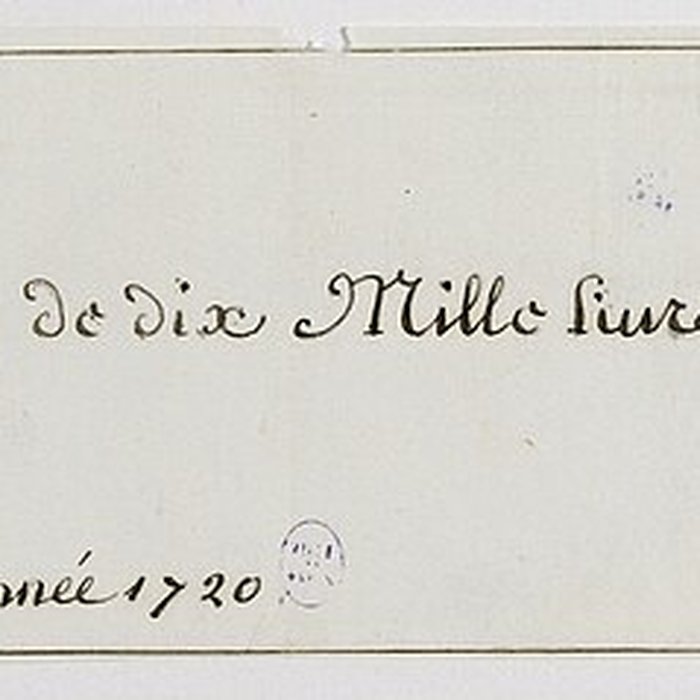 de dix Mille liure
nnée 1720